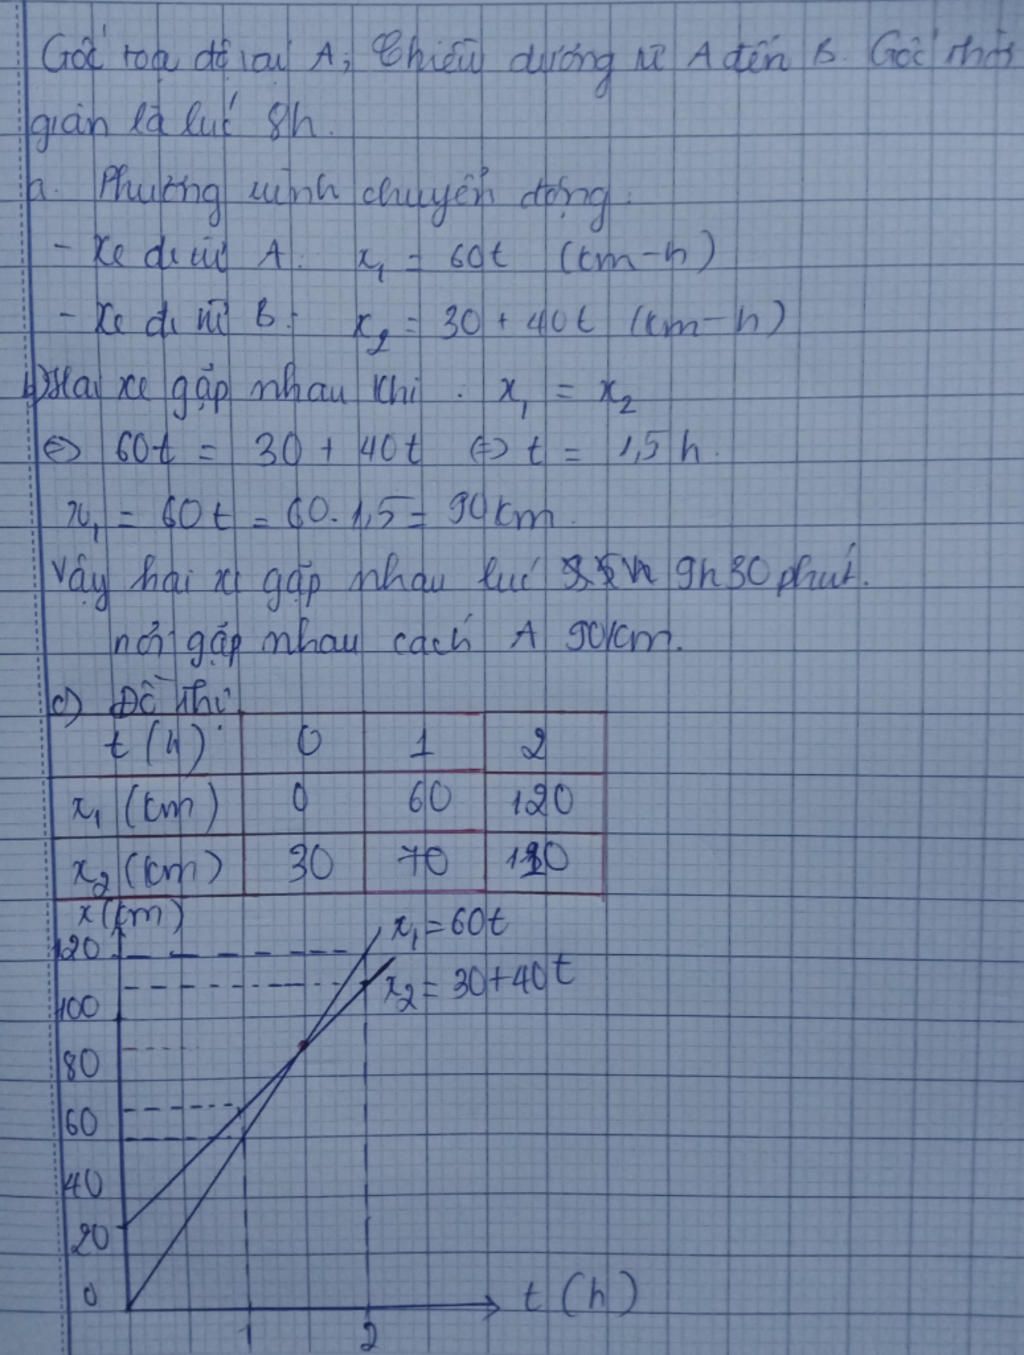 Gốc toạ độ tại A; Chiều dương từ A đến B. Gốc thời
gian là lúc 8h.
a. Phương trình chuyển động.
- Xe đi từ A: x₁ = 60t (km-h)
- Xe đi từ B: x₂ = 30 + 40t (km-h)
b) Hai xe gặp nhau khi : x₁ = x₂
⇔ 60t = 30 + 40t ⇔ t = 1,5 h.
x₁ = 60t = 60.1,5 = 90 km.
Vậy hai xe gặp nhau lúc 9h30 phút.
nơi gặp nhau cách A 90km.
c) Đồ thị
t (h) 0 1 2
x₁ (km) 0 60 120
x₂ (km) 30 70 110
x (km)
x₁ = 60t
120
x₂ = 30+40t
100
80
60
40
20
0
t (h)
1 2